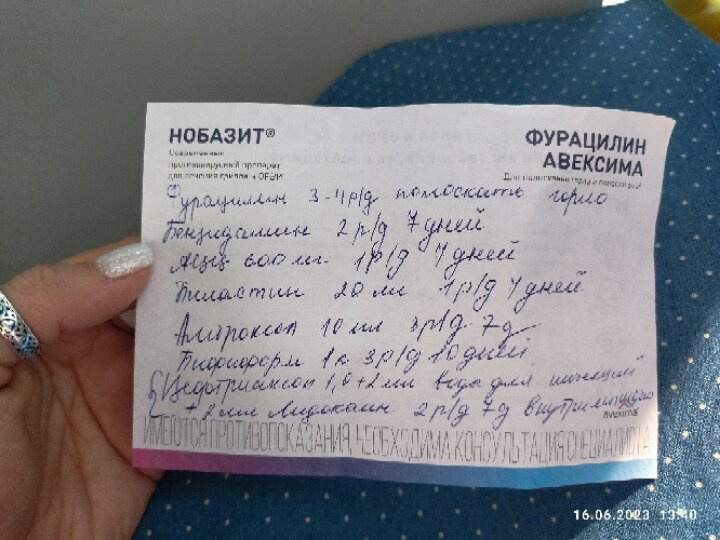 НОБАЗИТ®
Современный
противовирусный препарат
для лечения гриппа и ОРВИ
ФУРАЦИЛИН
АВЕКСИМА
Для полоскания горла и полости рта
Фурациллин 3-4 р/д полоскать горло
Бензидамин 2 р/д 7 дней
АЦЦ 600 мг 1 р/д 7 дней
20 мг 1 р/д 7 дней
Амброксол 10 мл 3 р/д 7 д
Бифиформ 1к 3 р/д 10 дней
Цефтриаксон 1,0 + 2 мл воды для инъекций
+ 2 мл Лидокаин 2 р/д 7 д внутримышечно
avexima
ИМЕЮТСЯ ПРОТИВОПОКАЗАНИЯ. НЕОБХОДИМА КОНСУЛЬТАЦИЯ СПЕЦИАЛИСТА
16.06.2023 13:40